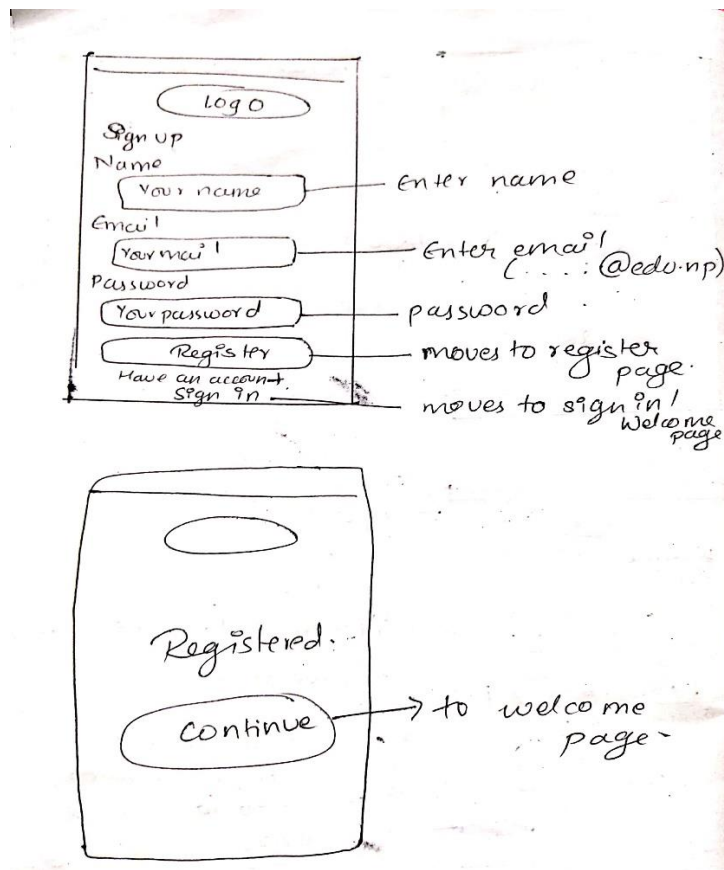 Logo
Sign up
Name
Your name
Enter name
Email
Your mail
Enter email
(....: @edu.np)
Password
Your password
password
Register
moves to register
page.
Have an account.
Sign in
moves to sign in/
Welcome
page
Registered.
Continue
to welcome
page